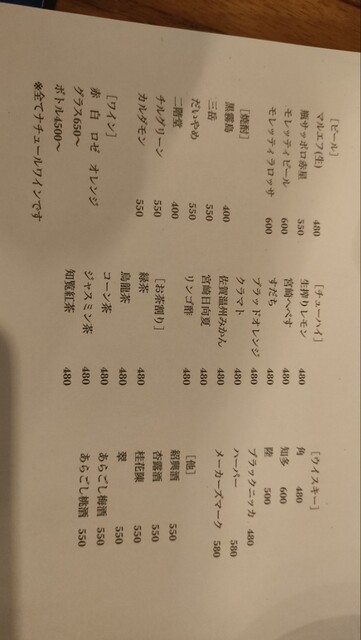 [ビール]
マルエフ(生) 480
瓶サッポロ赤星 550
モレッティビール 600
モレッティラロッサ 600
[焼酎]
黒霧島 400
三岳 550
だいやめ 550
二階堂 400
チルグリーン 550
カルダモン 550
[ワイン]
赤 白 ロゼ オレンジ
グラス650〜
ボトル4500〜
※全てナチュールワインです
[チューハイ]
生搾りレモン 480
宮崎へべす 480
すだち 480
ブラッドオレンジ 480
クラマト 480
佐賀温州みかん 480
宮崎日向夏 480
リンゴ酢 480
[お茶割り]
緑茶 480
烏龍茶 480
コーン茶 480
ジャスミン茶 480
知覧紅茶 480
[ウイスキー]
角 480
知多 600
陸 500
ブラックニッカ 480
ハーパー 580
メーカーズマーク 580
[他]
紹興酒 550
杏露酒 550
桂花陳 550
翠 550
あらごし梅酒 550
あらごし桃酒 550